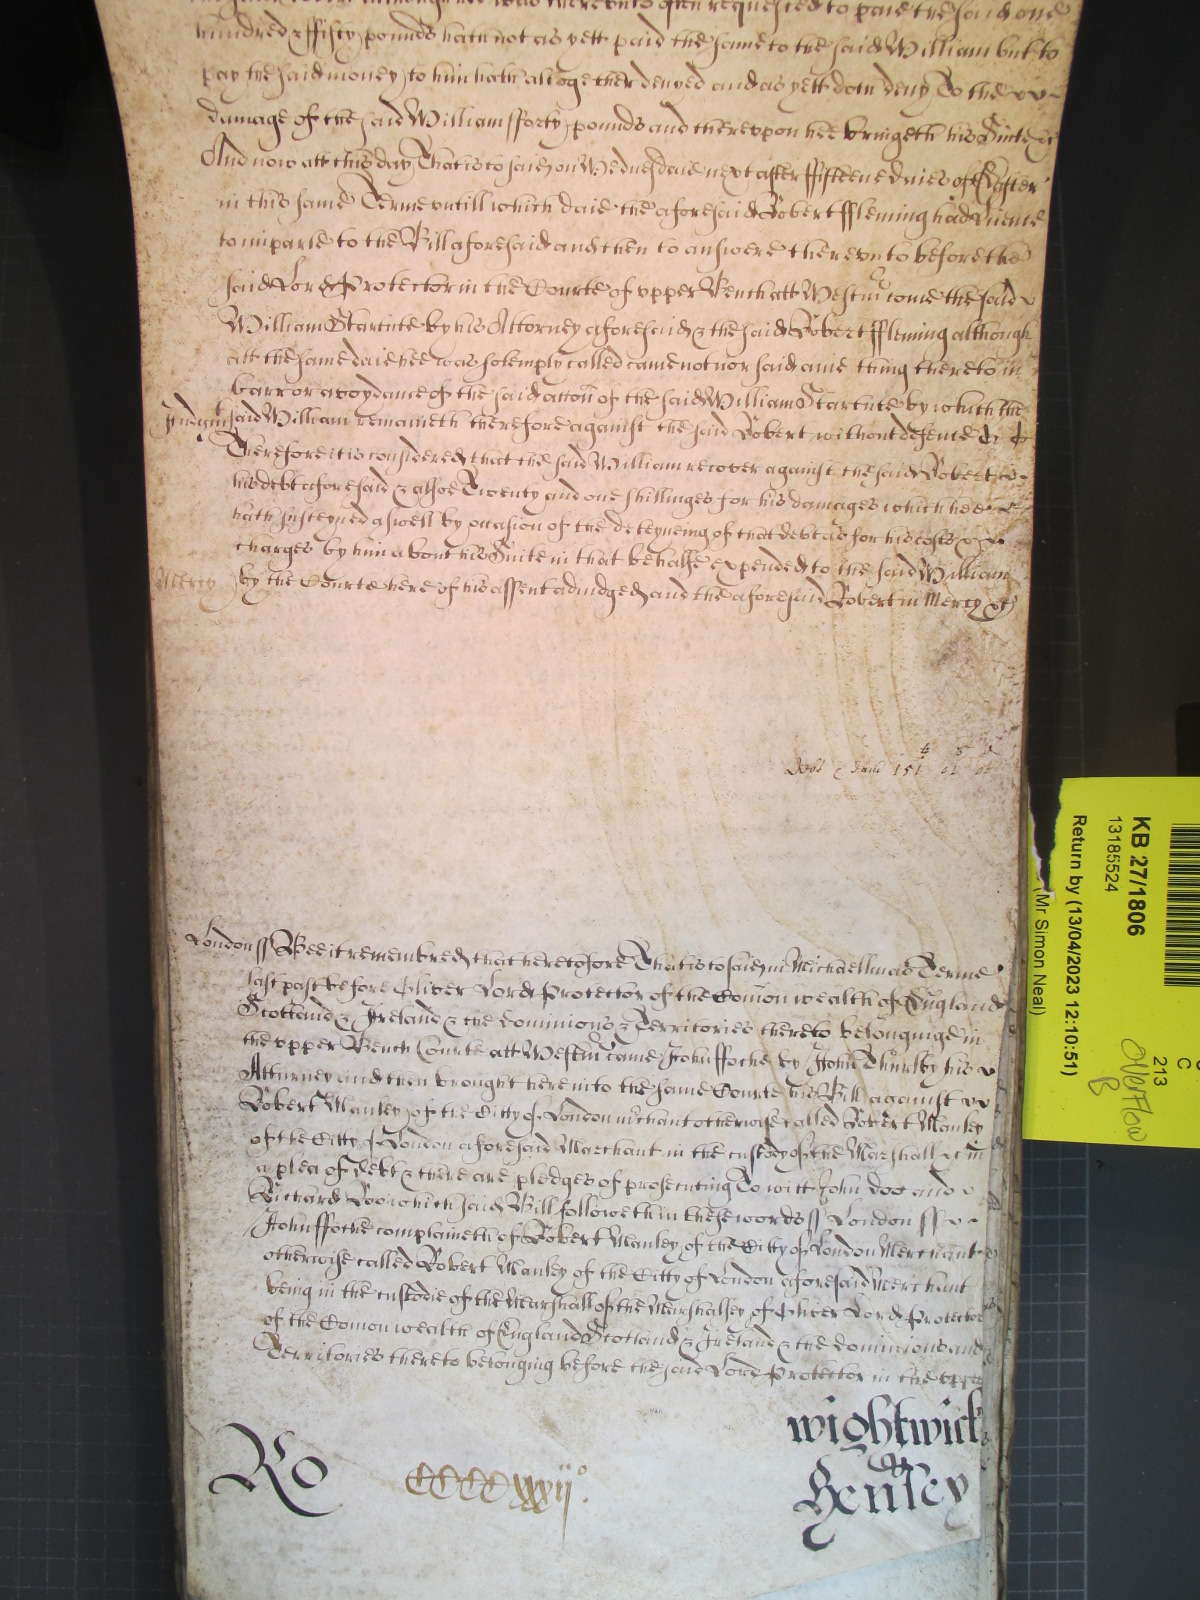 hundred & ffifty pounds hath not as yett paid the same to the said William but to
pay the said money to him hath altogether denyed and as yett doth deny To the
damage of the said William fforty pounds and thereupon hee bringeth his Suite &c
And now att this day That is to say on Wednesdaie next after ffifteene daies of Easter
in this same Terme untill which daie the aforesaid Robert ffleming had licence
to imparle to the Bill aforesaid and then to answere thereunto before the
said Lord Protector in the Courte of upper Bench att Westm come the said
William Startute by his Attorney aforesaid & the said Robert ffleming although
att the same daie hee was solemply called came not nor said anie thing thereto in
barr or avoydance of the said accon of the said William Startute by which the
Judgmt
said William remaineth therefore against the said Robert without defence &c
Therefore it is considered that the said William recover against the said Robert
his debt aforesaid & alsoe Twenty and one shillinges for his damages which hee
hath susteyned aswell by occasion of the deteyneing of that debt as for his costs
charges by him about his Suite in that behalfe expended to the said William
Mercy
by the Courte here of his assent adiudged and the aforesaid Robert in Mercy &c
li s d
Debt & dam 151 01 00
London ss Bee it remembred that heretofore That is to say in Michaellmas Terme
last past before Oliver Lord Protector of the Comon wealth of England
Scotland & Ireland & the dominions & Territories thereto belonginge in
the upper Bench Courte att Westm came John ffoche by John Thurlby his
Atturney and then brought here into the same Courte his Bill against
Robert Manley of the Citty of London mchant otherwise called Robert Manley
of the Citty of London aforesaid Marchant in the custody of the Marshall &c in
a plea of debt & there are pledges of prosecuting To witt John doe and
Richard Roo which said Bill followeth in these words ss London ss
John ffoche complaineth of Robert Manley of the Citty of London Merchant
otherwise called Robert Manley of the Citty of London aforesaid Merchant
being in the custodie of the Marshall of the Marshallsey of Oliver Lord Protector
of the Comon wealth of England Scotland & Ireland & the dominions and
Territories thereto belonging before the said Lord Protector in the upper
wightwick
&
Henley
Ro CCCCxxxij°.
KB 27/1806
13185524
Return by (13/04/2023 12:10:51)
(Mr Simon Neal)
213
C
Overflow
B